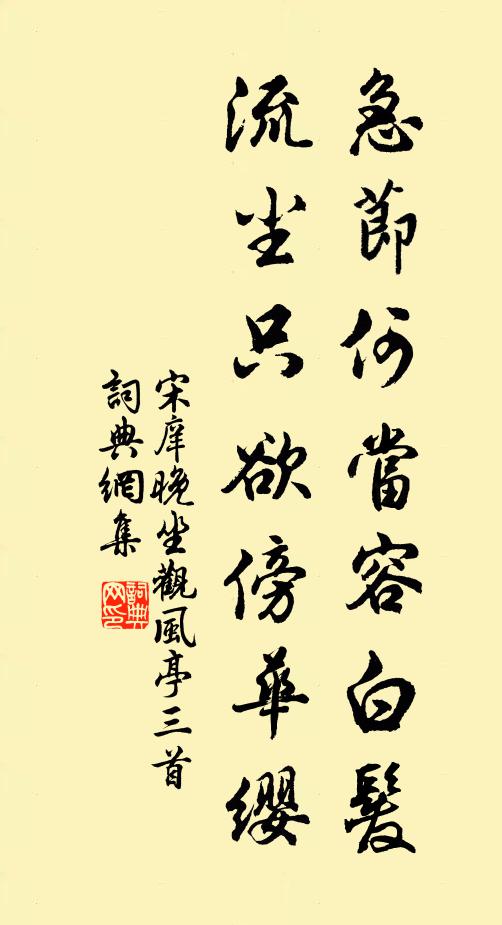 急節何當容白髮
流坐只欲傍華纓
宋庠晚坐觀風亭三首
詞典網集
詞典网印